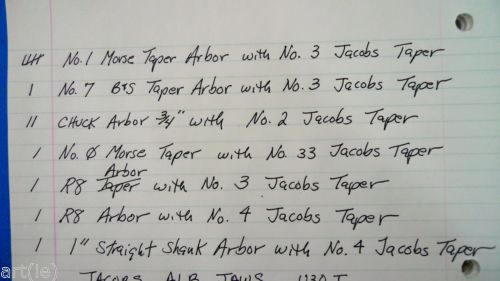 卌 No. 1 Morse Taper Arbor with No. 3 Jacobs Taper
1 No. 7 B+S Taper Arbor with No. 3 Jacobs Taper
11 CHUCK Arbor 3/4" with No. 2 Jacobs Taper
1 No. 0 Morse Taper with No. 33 Jacobs Taper
Arbor
1 R8 Taper with No. 3 Jacobs Taper
1 R8 Arbor with No. 4 Jacobs Taper
1 1" Straight Shank Arbor with No. 4 Jacobs Taper
JACOBS JAWS
art(le)